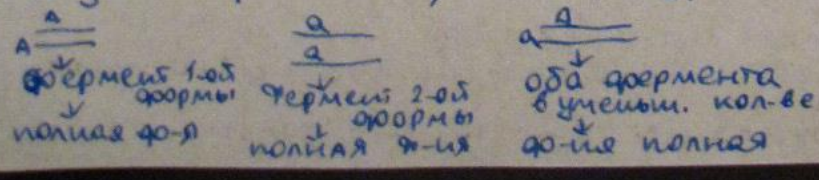 A
A
фермент 1-ой
формы
полная ф-я
a
a
фермент 2-ой
формы
полная ф-ия
A
a
оба фермента
в уменьш. кол-ве
ф-ия полная